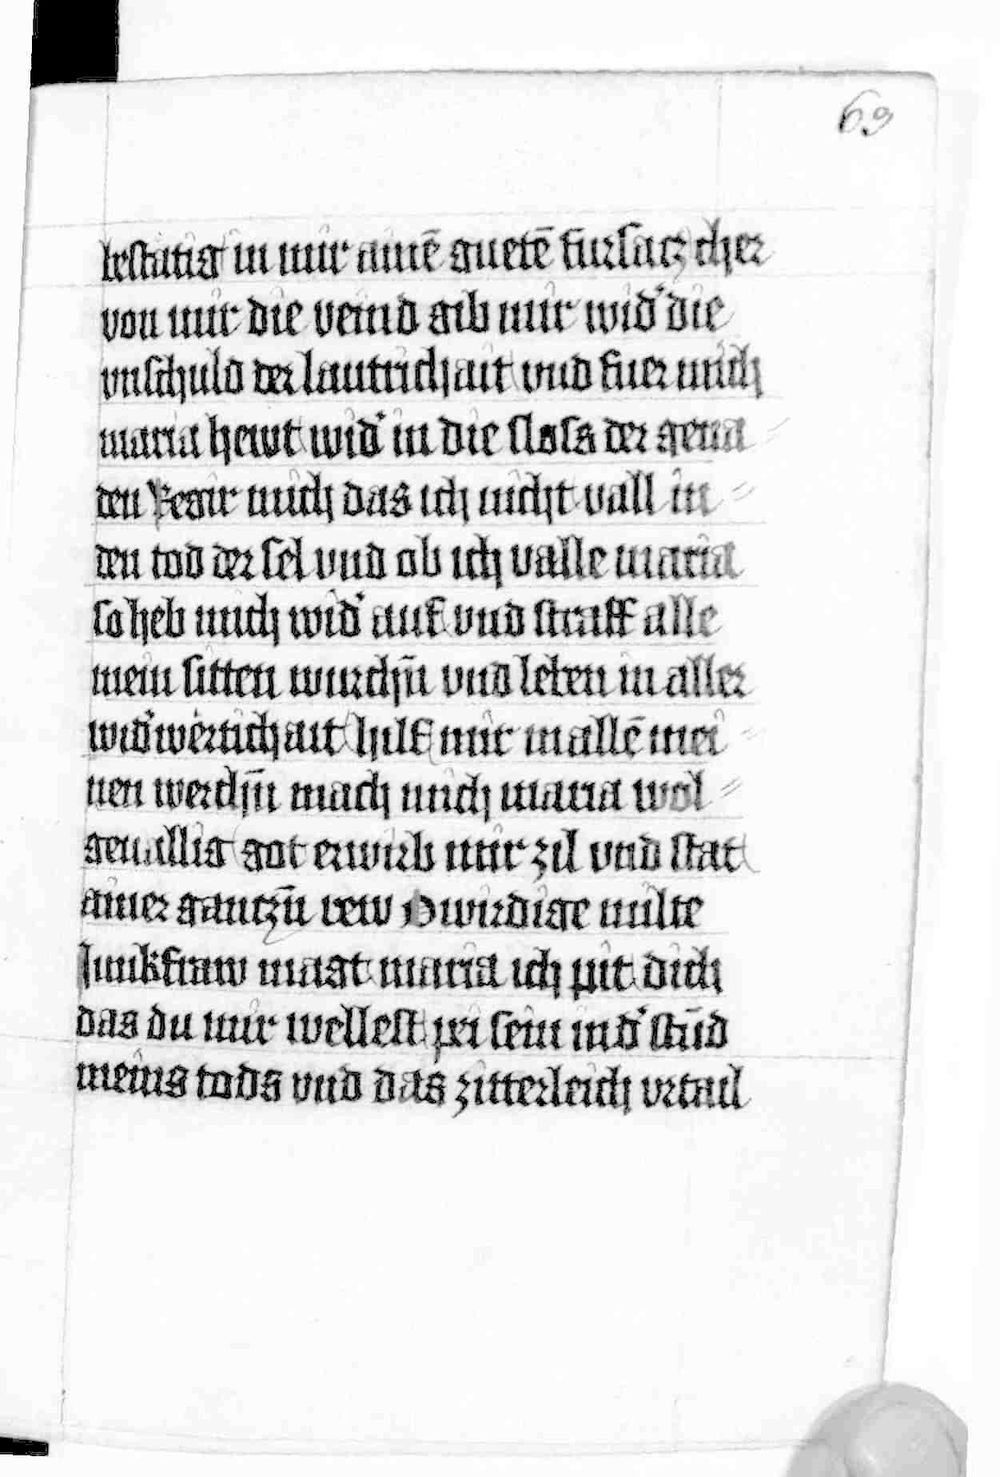 69
bestatig in mir ainē guetē fursacz cher
von mir die veind gib mir wid' die
vnschuld der lautrichait vnd fuer mich
maria hewt wid' in die sloss der gena
den Regir mich das ich nicht vall in
den tod der sel vnd ob ich valle maria
so heb mich wid' auf vnd straff alle
mein sitten wurchn̄ vnd leben in aller
wid'wertichait hilf mir in allē mei
nen werchn̄ mach mich maria wol
geuallig got erwirb mir zil vnd stat
ainer gantzn̄ rew O wirdige milte
Junkfraw magt maria ich pit dich
das du mir wellest pei sein in d' stūd
meins tods vnd das zitterleich vrtail